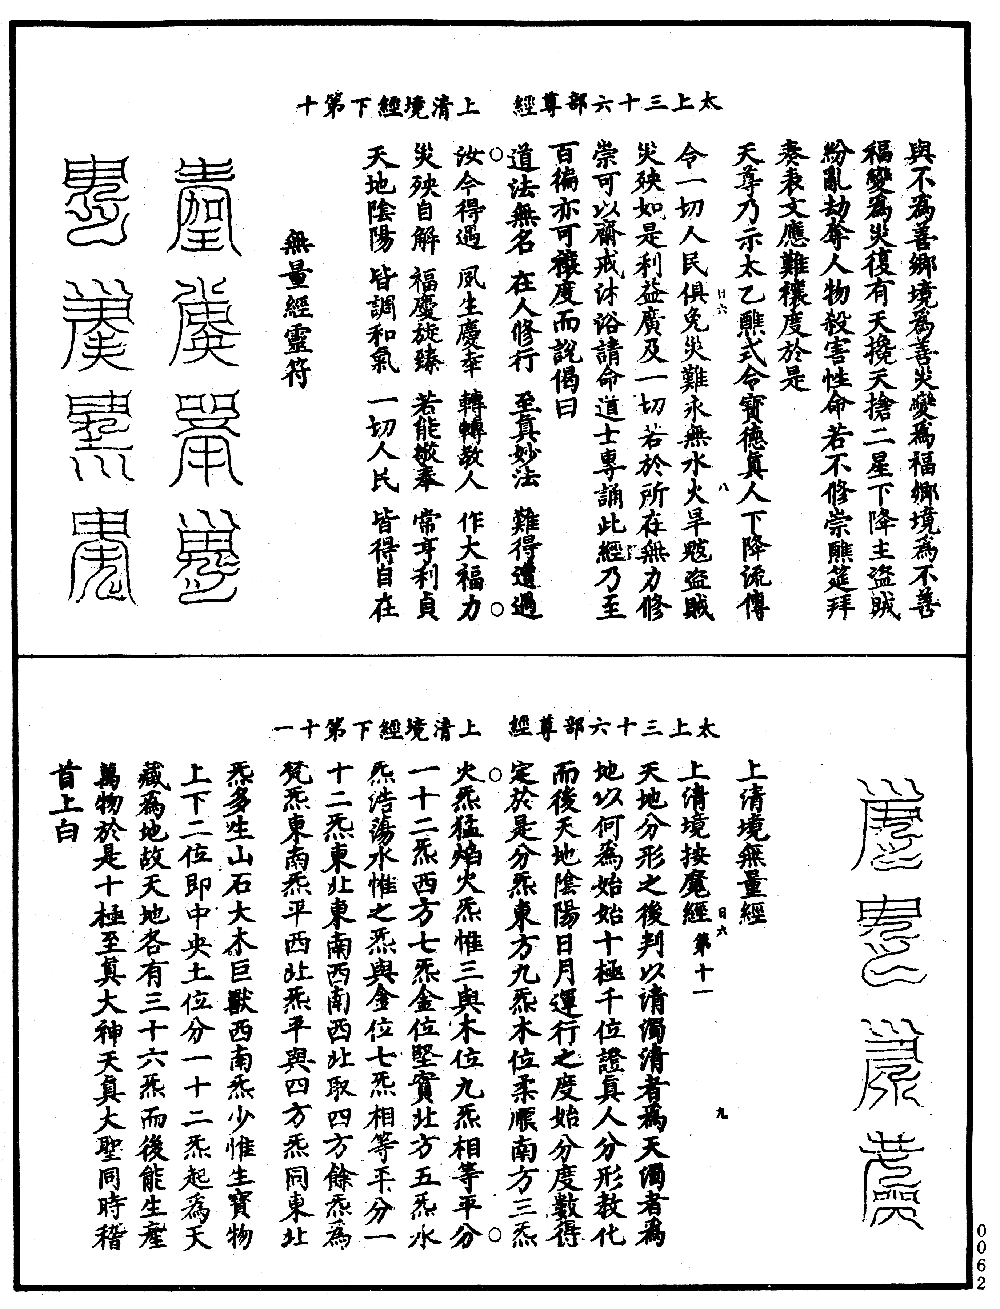 太上三十六部尊經　上清境經下第十
與不爲善鄉境爲善災變爲福鄉境爲不善
福變爲災復有天攙天搶二星下降主盜賊
紛亂劫奪人物殺害性命若不修崇醮筵拜
奏表文應難禳度於是
天尊乃示太乙醮式令寶德眞人下降流傳
日六　八
令一切人民俱免災難永無水火旱魃盜賊
災殃如是利益廣及一切若於所在無力修
崇可以齋戒沐浴請命道士專誦此經乃至
百徧亦可禳度而說偈曰
道法無名　在人修行　至眞妙法　難得遭遇
汝今得遇　夙生慶幸　轉轉教人　作大福力
災殃自解　福慶旋臻　若能敬奉　常亨利貞
天地陰陽　皆調和氣　一切人民　皆得自在
無量經靈符
太上三十六部尊經　上清境經下第十一
上清境無量經
上清境按魔經第十一
日六　九
天地分形之後判以清濁清者爲天濁者爲
地以何爲始始十極千位證眞人分形教化
而後天地陰陽日月運行之度始分度數得
定於是分炁東方九炁木位柔順南方三炁
火炁猛焰火炁惟三與木位九炁相等平分
一十二炁西方七炁金位堅實北方五炁水
炁浩蕩水惟之炁與金位七炁相等平分一
十二炁東北東南西南西北取四方餘炁爲
梵炁東南炁平西北炁平與四方炁同東北
炁多生山石大木巨獸西南炁少惟生寶物
上下二位即中央土位分一十二炁起爲天
藏爲地故天地各有三十六炁而後能生產
萬物於是十極至眞大神天眞大聖同時稽
首上白
0062